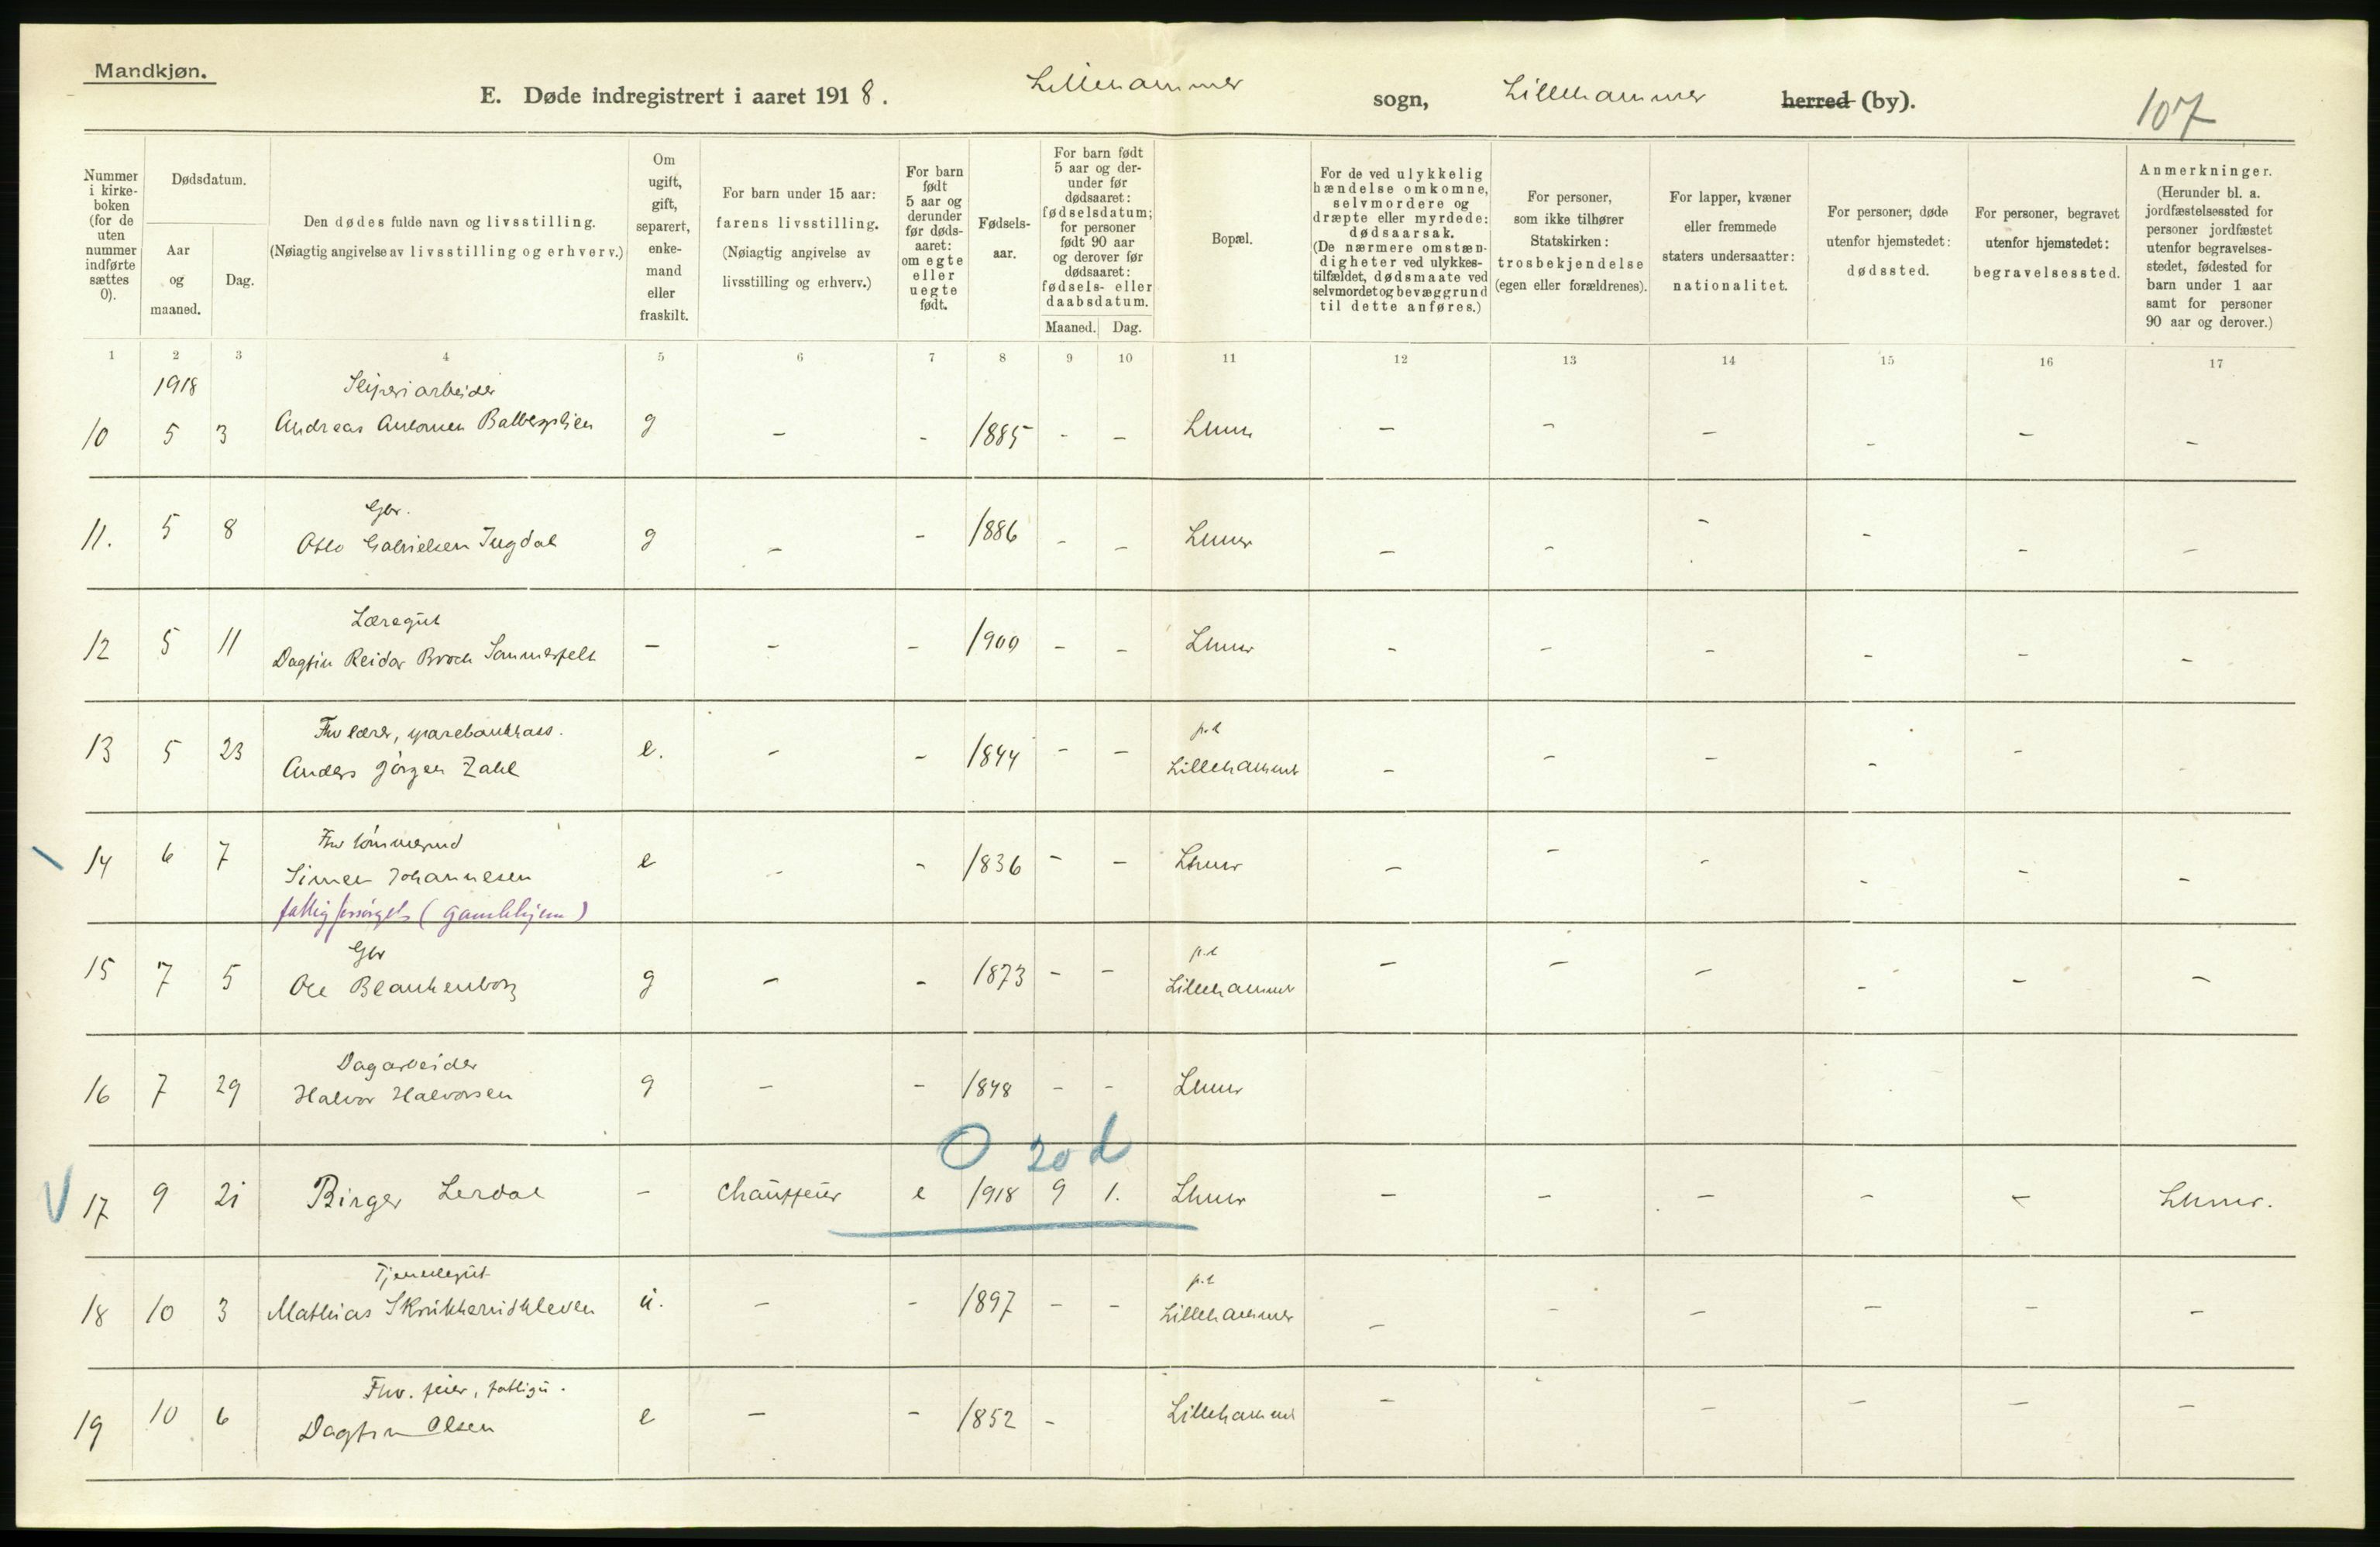 Mandkjøn.
E. Døde indregistrert i aaret 1918. Lillehammer sogn, Lillehammer herred (by).
107
Nummer i kirke- boken (for de uten nummer indførte sættes 0).
Dødsdatum.
Aar og maaned.
Dag.
Den dødes fulde navn og livsstilling.
(Nøiagtig angivelse av livsstilling og erhverv.)
Om ugift, gift, separert, enke- mand eller fraskilt.
For barn under 15 aar:
farens livsstilling.
(Nøiagtig angivelse av
livsstilling og erhverv.)
For barn født 5 aar og derunder før døds- aaret: om egte eller uegte født.
Fødsels- aar.
For barn født 5 aar og der- under før dødsaaret: fødselsdatum; for personer født 90 aar og derover før dødsaaret: fødsels- eller daabsdatum.
Maaned. Dag.
Bopæl.
For de ved ulykkelig hændelse omkomne, selvmordere og dræpte eller myrdede: dødsaarsak. (De nærmere omstæn- digheter ved ulykkes- tilfældet, dødsmaate ved selvmordet og bevæggrund til dette anføres.)
For personer, som ikke tilhører Statskirken: trosbekjendelse (egen eller forældrenes).
For lapper, kvæner eller fremmede staters undersaatter: nationalitet.
For personer, døde utenfor hjemstedet: dødssted.
For personer, begravet utenfor hjemstedet: begravelsessted.
Anmerkninger. (Herunder bl. a. jordfæstelsessted for personer jordfæstet utenfor begravelses- stedet, fødested for barn under 1 aar samt for personer 90 aar og derover.)
1 2 3 4 5 6 7 8 9 10 11 12 13 14 15 16 17
1918 Sliperiarbeider
10 5 3 Andreas Antonsen Balbergslien g - - 1885 - - Lhmr - - - - - -
Gbr.
11. 5 8 Otto Gabrielsen g - - 1886 - - Lhmr - - - - - -
Læregut
12 5 11 Dagfin Reidar Broch Sommerfelt - - - 1900 - - Lhmr - - - - - -
Fhv lærer, sparebankkass. p.t
13 5 23 Anders Jörgen Zahl e. - - 1844 - - Lillehammer - - - - - -
Fhv tömmermd
14 6 7 Simen Johannesen e - - 1836 - - Lhmr - - - - - -
fattigforsörget (Gamlehjem)
Gbr p.t
15 7 5 Ole Blankenborg g - - 1873 - - Lillehammer - - - - - -
Dagarbeider
16 7 29 Halvor Halvorsen g - - 1848 - - Lhmr
0 20 d
V 17 9 21 Birger Lerdal - Chauffeur e 1918 9 1. Lhmr - - - - - Lhmr.
Tjenestegut p.t
18 10 3 Mathias Skrukkerudkleven u. - - 1897 - - Lillehammer - - - - - -
Fhv. feier, fattigu.
19 10 6 Dagfin Olsen e - - 1852 - Lillehammer - - - - -